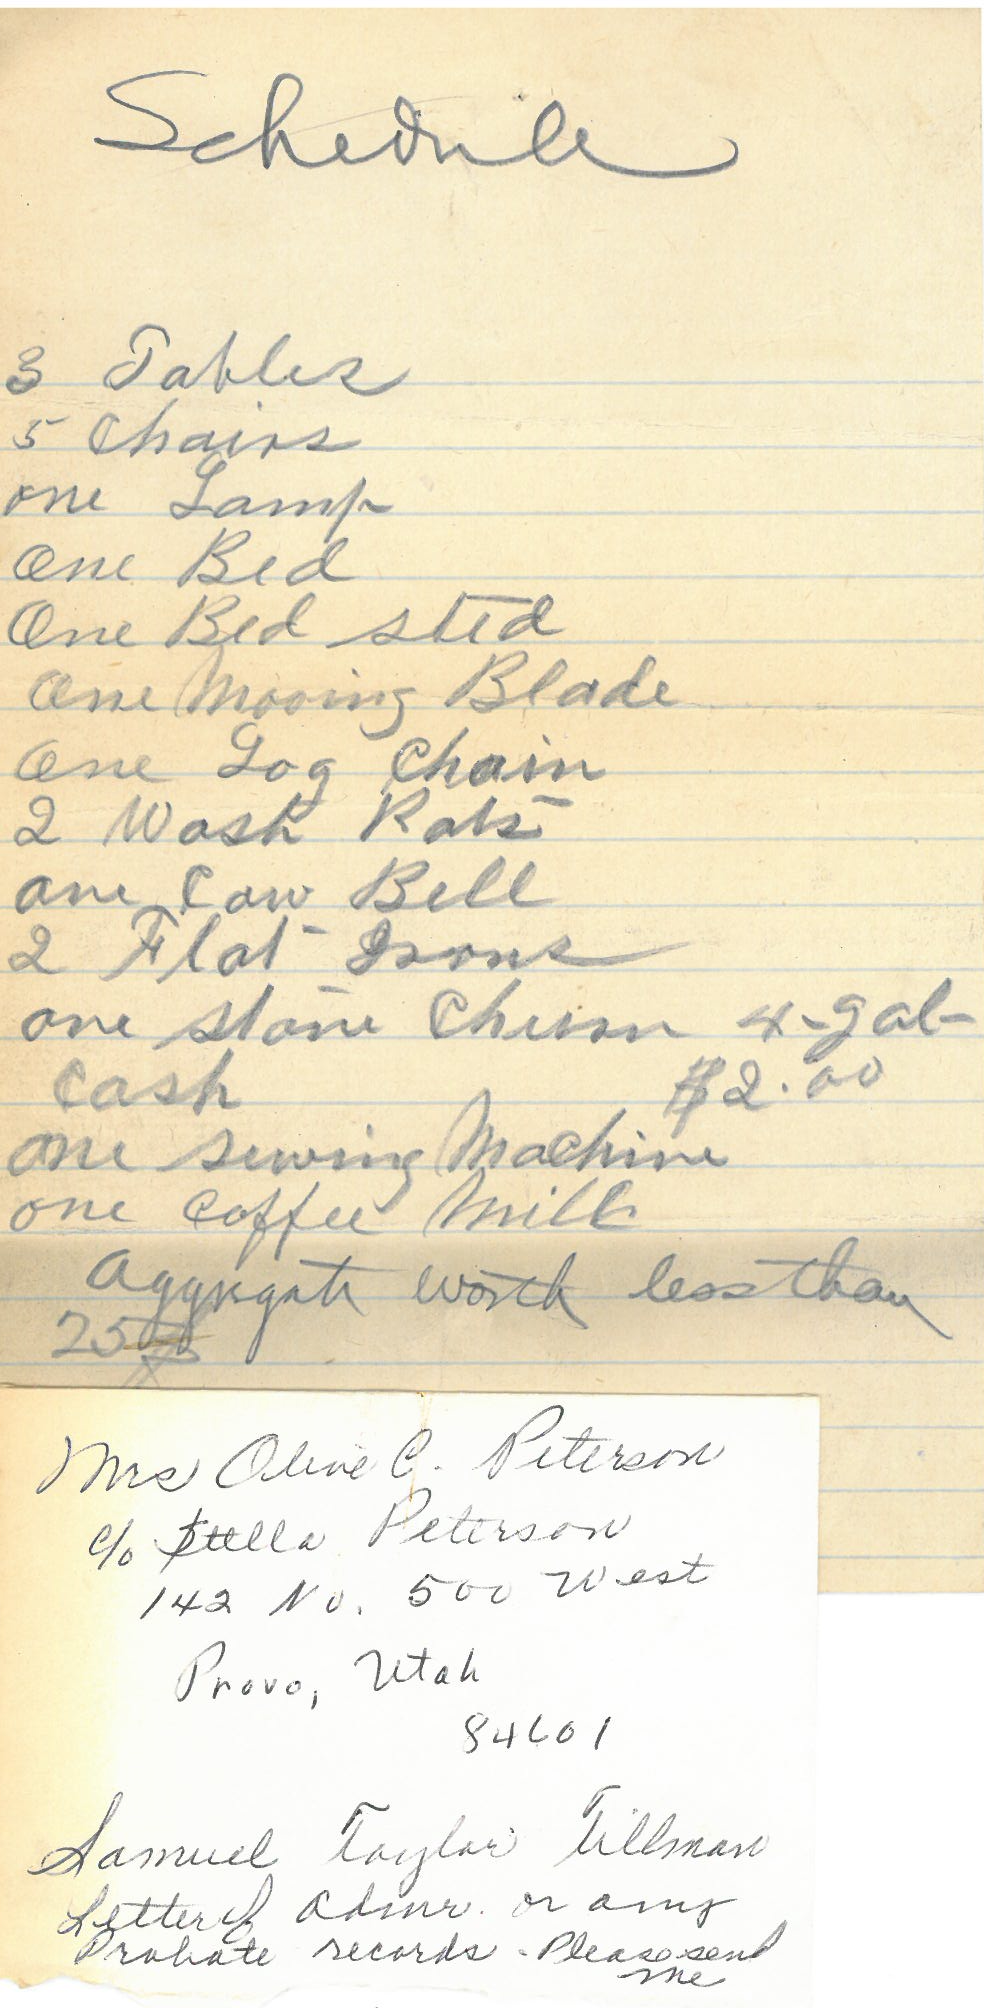 Schedule
3 Tables
5 Chairs
one Lamp
One Bed
One Bed sted
One Mooing Blade
One Log Chain
2 Wash Kats
one Cow Bell
2 Flat Irons
one stone Churn 4-gal-
Cash $2.00
one sewing Machine
one Coffee Mill
Aggregate worth less than
25
Mrs Olive C. Peterson
c/o Stella Peterson
142 No. 500 West
Provo, Utah
84601
Samuel Taylor Tillman
Letter of Admr. or any
Probate records - Please send
me